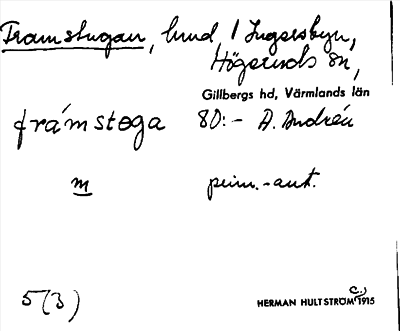 Framstugan, hmd, i Ingersbyn,
Högeruds sn,
Gillbergs hd, Värmlands län
frámstoga 80:- A. Andrén
m prim.-ant.
5(3) HERMAN HULTSTRÖM (C.) 1915